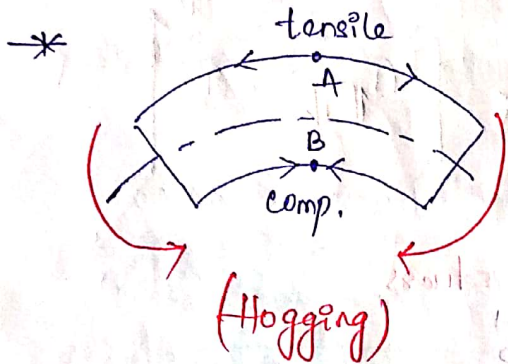 tensile
A
B
comp.
(Hogging)